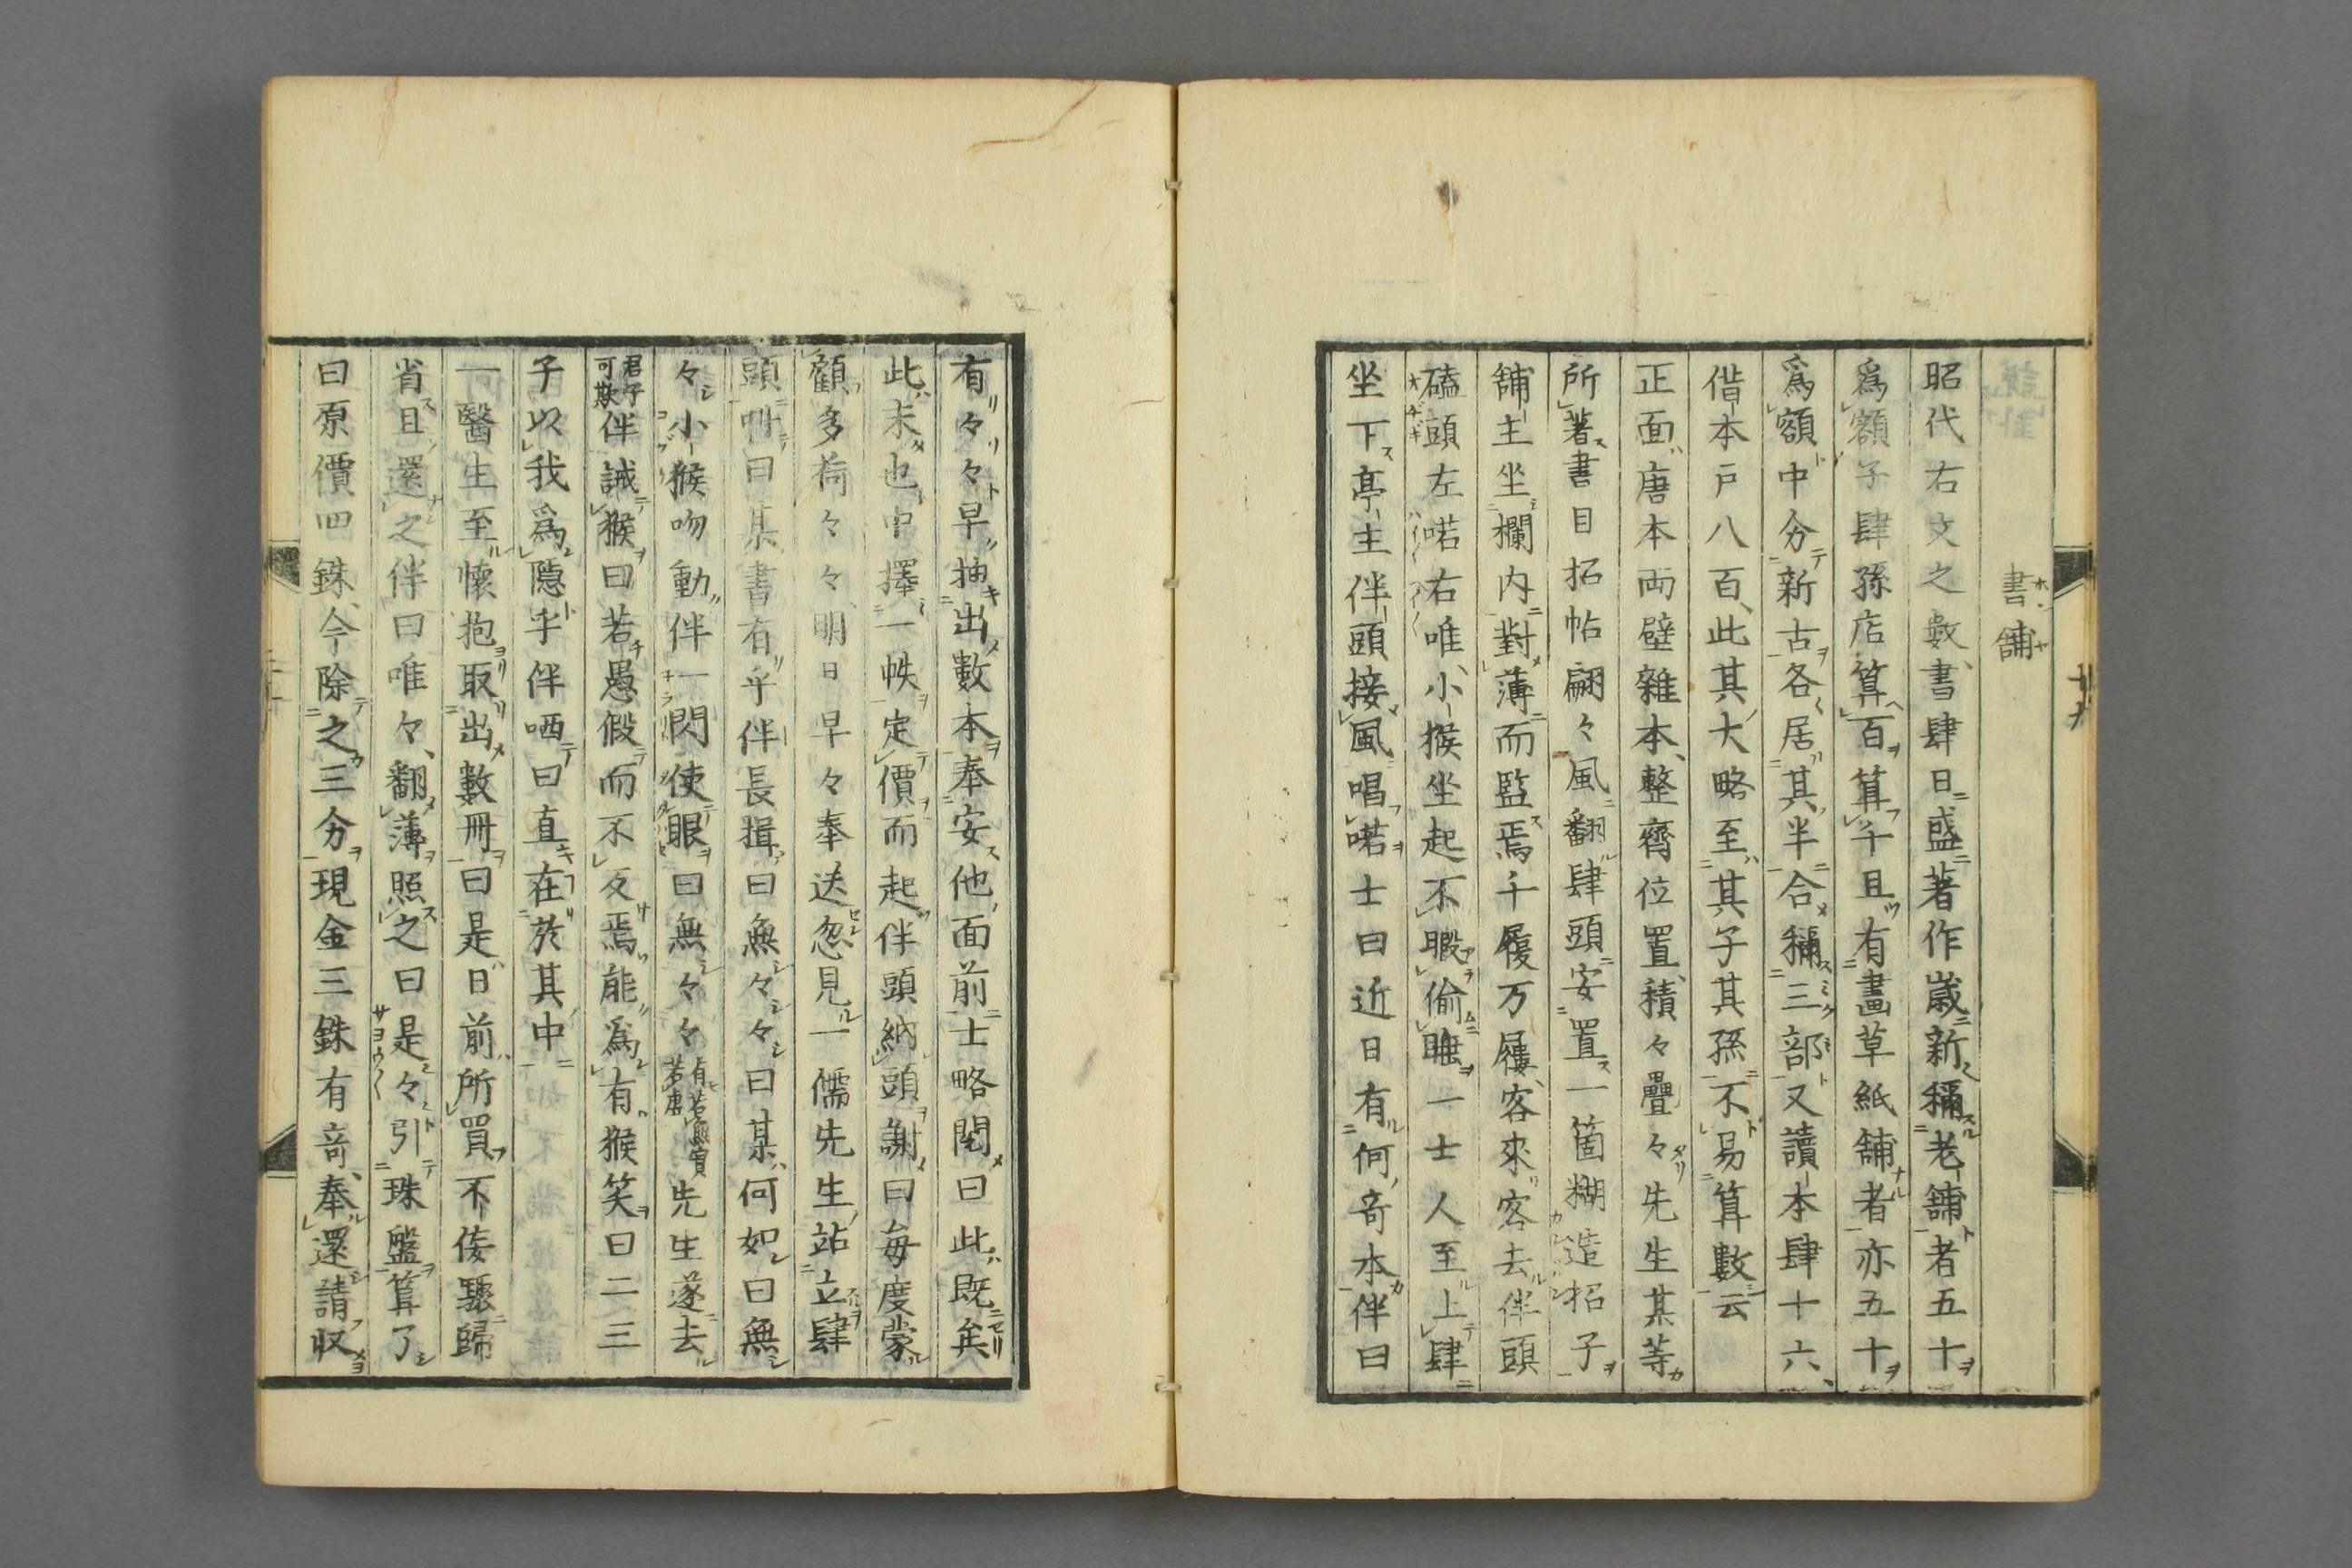 書舗
昭代右文之數、書肆日盛著作歳新稱老舗者五十
爲額子肆孫店算百算千且有畫草紙舗者亦五十
爲額中分新古各居其半合稱三部又讀本肆十六、
借本戸八百、此其大略至其子其孫不易算數云
正面唐本両壁雜本、整齊位置、積々疊々先生某等
所著書目招帖翩々風翻肆頭安置一箇糊造招子
舗主坐欄内對薄而監焉千履万屨、客來客去伴頭
磕頭左喏右唯、小猴坐起不暇偷睡一士人至上肆
坐下亭主伴頭接風唱喏士曰近日有何奇本伴曰
有々々早抽出數本奉安他面前士略閲曰此既矣
此未也中擇一帙定價而起伴頭納頭謝曰毎度蒙
顧多荷々々、明日早々奉送忽見一儒先生站立肆
頭呌曰某書有乎伴長揖曰無々々曰某何如曰無
々小猴吻動伴一閃使眼曰無々々有若無實若虚先生遂去
君子可欺伴誡猴曰若愚假而不反焉能爲有猴笑曰二三
子以我爲隱乎伴哂曰直在於其中
一醫生至懷抱取出數冊曰是日前所買不佞驟歸
省且還之伴曰唯々、翻薄照之曰是々引珠盤算了
曰原價四銖、今除之三分現金三銖有奇、奉還請収
十九